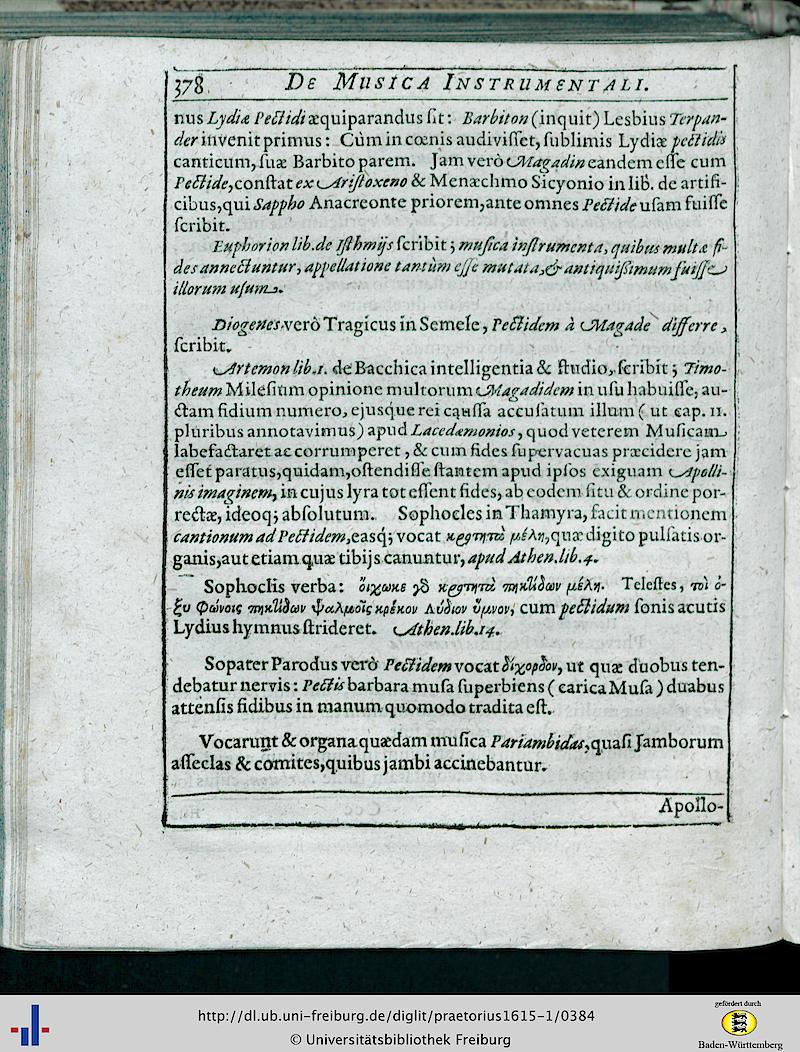 378 DE MUSICA INSTRUMENTALI.
nus Lydiæ Pectidi æquiparandus ſit: Barbiton (inquit) Lesbius Terpan-
der invenit primus: Cùm in cœnis audiviſſet, ſublimis Lydiæ pectidis
canticum, ſuæ Barbito parem. Jam verò Magadin eandem eſſe cum
Pectide, conſtat ex Ariſtoxeno & Menæchmo Sicyonio in lib. de artifi-
cibus, qui Sappho Anacreonte priorem, ante omnes Pectide uſam fuiſſe
ſcribit.
Euphorion lib. de Iſthmijs ſcribit; muſica inſtrumenta, quibus multæ fi-
des annectuntur, appellatione tantùm eſſe mutata, & antiquißimum fuiſſe
illorum uſum.
Diogenes verò Tragicus in Semele, Pectidem à Magade differre,
ſcribit.
Artemon lib. 1. de Bacchica intelligentia & ſtudio, ſcribit; Timo-
theum Mileſium opinione multorum Magadidem in uſu habuiſſe, au-
ctam fidium numero, ejusque rei cauſſa accuſatum illum (ut cap. 11.
pluribus annotavimus) apud Lacedæmonios, quod veterem Muſicam
labefactaret ac corrumperet, & cum fides ſupervacuas præcidere jam
eſſet paratus, quidam, oſtendiſſe ſtantem apud ipſos exiguam Apolli-
nis imaginem, in cujus lyra tot eſſent fides, ab eodem ſitu & ordine por-
rectæ, ideoq; abſolutum. Sophocles in Thamyra, facit mentionem
cantionum ad Pectidem, easq; vocat κροτητὰ μέλη, quæ digito pulſatis or-
ganis, aut etiam quæ tibijs canuntur, apud Athen. lib. 4.
Sophoclis verba: ὄιχωκε γὸ κροτητὰ πηκτίδων μέλη. Teleſtes, τοὶ ὀ-
ξυ φώνοις πηκτίδων ψαλμοῖς κρέκον Λύδιον ὕμνον, cum pectidum ſonis acutis
Lydius hymnus ſtrideret. Athen. lib. 14.
Sopater Parodus verò Pectidem vocat δίχορδον, ut quæ duobus ten-
debatur nervis: Pectis barbara muſa ſuperbiens (carica Muſa) duabus
attenſis fidibus in manum quomodo tradita eſt.
Vocarunt & organa quædam muſica Pariambidas, quaſi Jamborum
aſſeclas & comites, quibus jambi accinebantur.
Apollo-
http://dl.ub.uni-freiburg.de/diglit/praetorius1615-1/0384
© Universitätsbibliothek Freiburg
gefördert durch
Baden-Württemberg